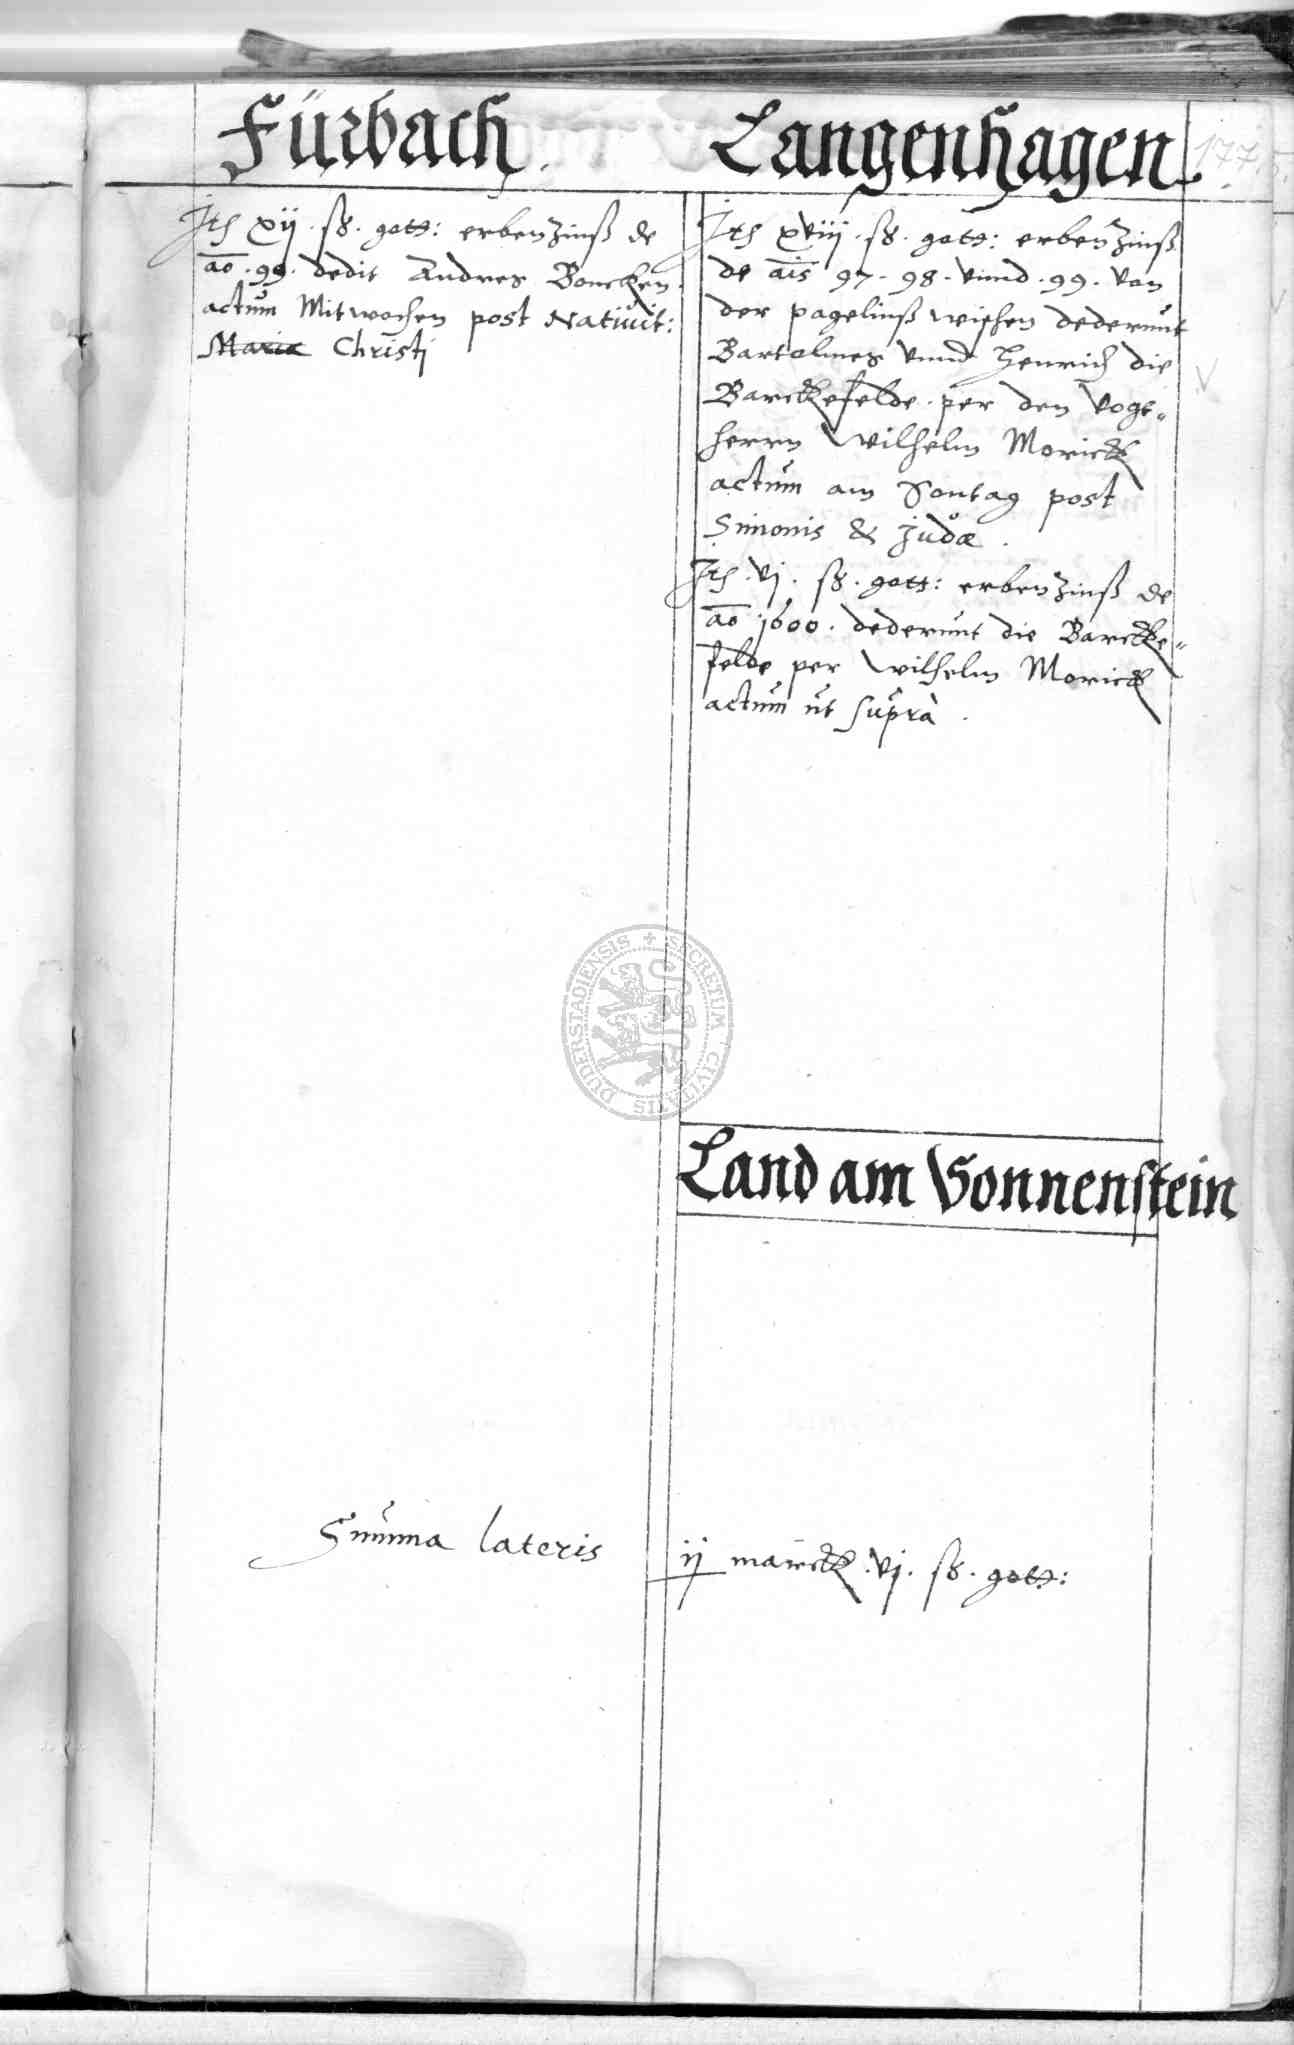 Fürbach.
Itē xij. ß. gott: erbenzinß de
ao. 99. dedit Andres Boncken.
actum Mitwochen post Nativit:
Mariæ Christj
Langenhagen.
177
Itē xviij. ß. gott: erbenzinß
de ais 97. 98. vnnd. 99. von
der pagelinß wischen dederunt
Bartolmes vnnd Henrich die
Barckefelde. per den vogt„
herrn Wilhelm Morick
actum am Sontag post
Simonis & Judæ.
Itē. vj. ß. gott: erbenzinß de
ao 1600. dederunt die Barcke„
felde per Wilhelm Morick
actum ut suprà.
SECRETUM CIVITATIS DUDERSTADIENSIS
Land am Sonnenstein
Summa lateris ij marck. vj. ß. gott: